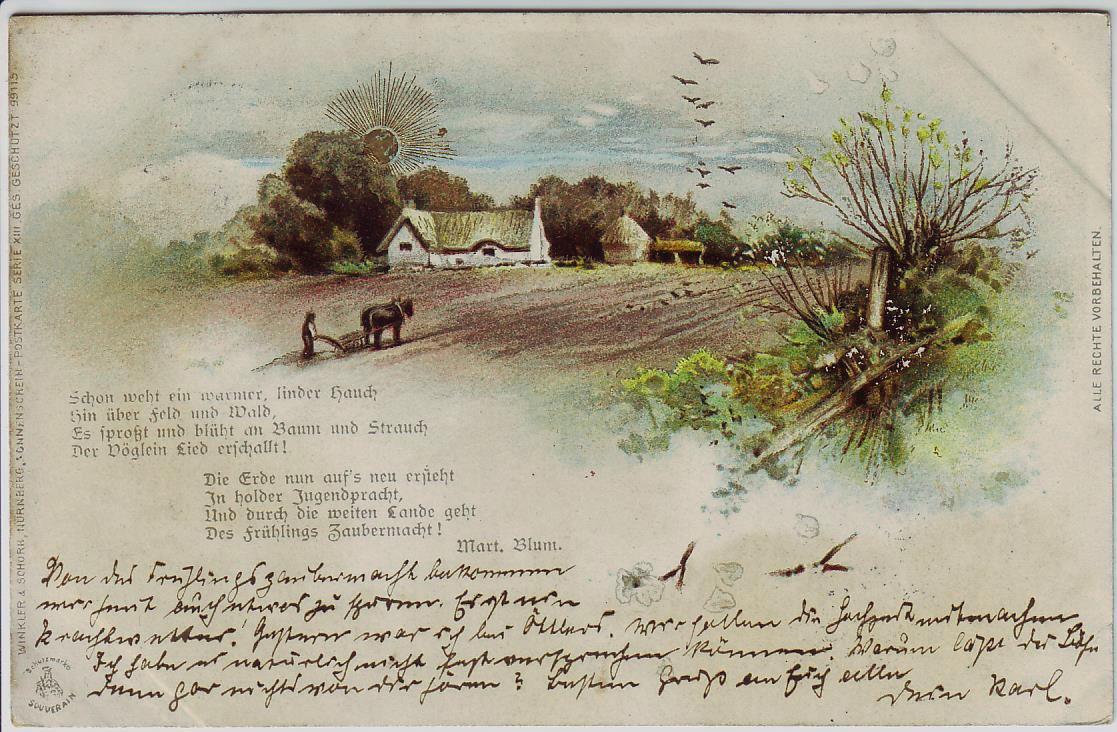 WINKLER & SCHORN, NÜRNBERG, SONNENSCHEIN-POSTKARTE SERIE XIII GES. GESCHÜTZT 99115
Schon weht ein warmer, linder Hauch
Hin über Feld und Wald,
Es sproßt und blüht an Baum und Strauch
Der Vöglein Lied erschallt!
Die Erde nun auf's neu ersteht
In holder Jugendpracht,
Und durch die weiten Lande geht
Des Frühlings Zaubermacht!
Mart. Blum.
Von des Frühlingszaubermacht bekommen
wir heut auch etwas zu spüren. Es ist ein
Prachtwetter! Gestern war ich bei Ottlers. Wir sollen die Hochzeit mitmachen
Ich habe es natürlich nicht fest versprechen können. Warum läßt du
denn gar nichts von dir hören? Besten Gruß an Euch alle
Dein Karl.
Schutzmarke
SOUVERAIN
ALLE RECHTE VORBEHALTEN.